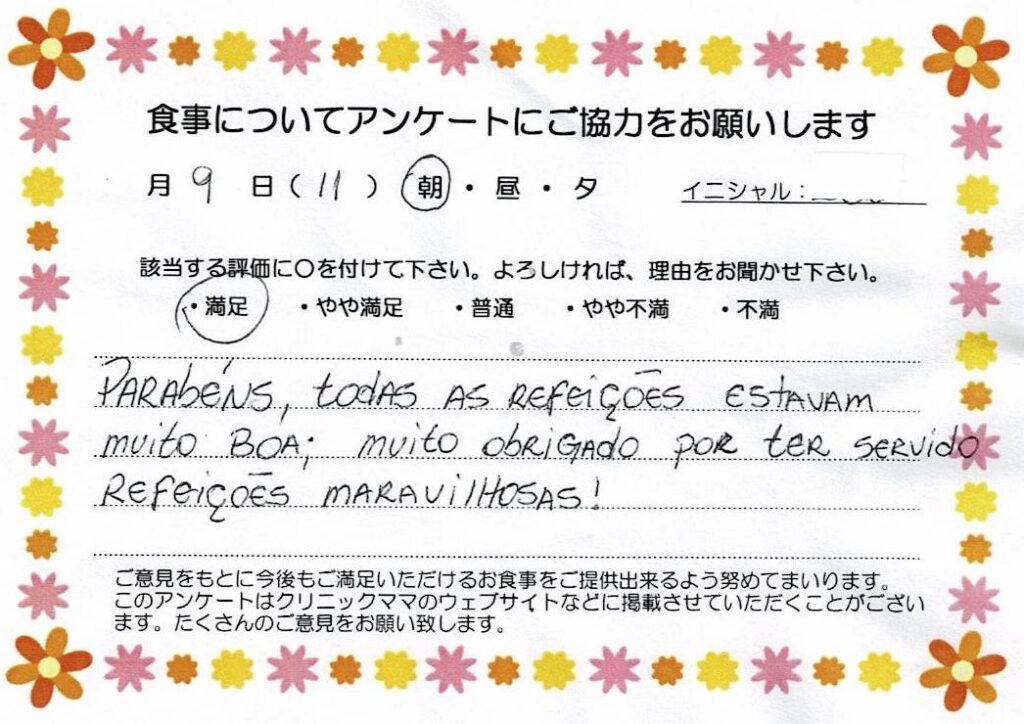 食事についてアンケートにご協力をお願いします
月 9 日 ( 11 ) 朝 ・ 昼 ・ 夕 イニシャル:
該当する評価に○を付けて下さい。よろしければ、理由をお聞かせ下さい。
・満足 ・やや満足 ・普通 ・やや不満 ・不満
PARAbÉNS, todAS AS REFEIÇÕES EStAVAM
muito BOA; muito obRIGADO poR teR SERVIDO
REFEIÇÕES MARAVILHOSAS!
ご意見をもとに今後もご満足いただけるお食事をご提供出来るよう努めてまいります。
このアンケートはクリニックママのウェブサイトなどに掲載させていただくことがござい
ます。たくさんのご意見をお願い致します。